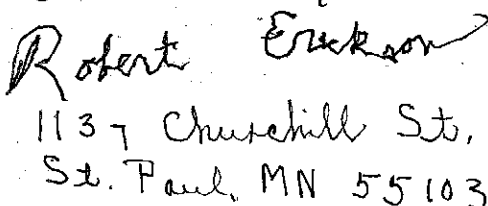 Robert Erickson
1137 Churchill St.
St. Paul, MN 55103